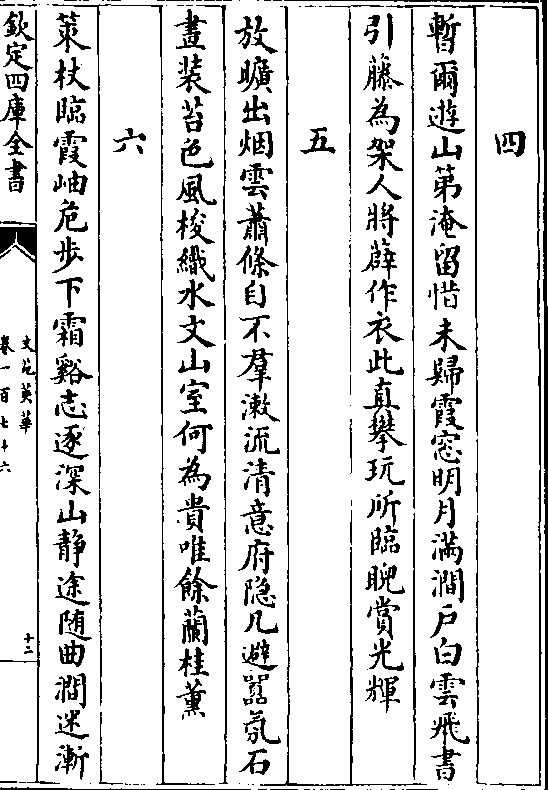 四
暫爾遊山第淹留惜未歸霞窓明月滿澗戸白雲飛書
引藤為架人將薜作衣此真攀玩所臨睨賞光輝
五
放曠出烟雲蕭條自不羣漱流清意府隠几避囂氛石
畫裝苔色風梭織水文山室何為貴唯餘蘭桂薰
六
策杖臨霞岫危步下霜谿志逐深山静途随曲澗迷漸
欽定四庫全書
文苑英華
卷一百七十六
十二